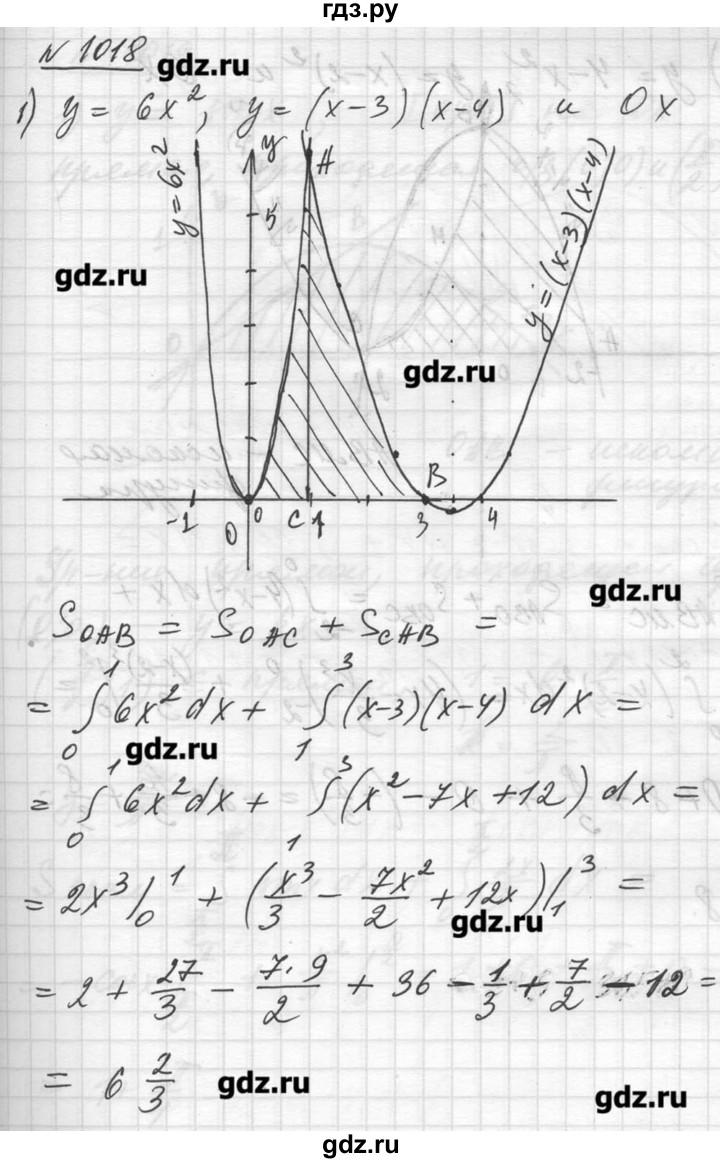 гдз.ру
N 1018
gdz.ru
1) y = 6x², y = (x-3)(x-4) и Ox
y = 6x²
y
A
5
y = (x-3)(x-4)
gdz.ru
gdz.ru
B
-1 0 0 C 1 3 4
gdz.ru
S_OAB = S_OAC + S_CAB =
= ∫₀¹ 6x² dx + ∫₁³ (x-3)(x-4) dx =
gdz.ru
= ∫₀¹ 6x² dx + ∫₁³ (x² - 7x + 12) dx =
= 2x³ |₀¹ + (x³/3 - 7x²/2 + 12x) |₁³ =
gdz.ru
= 2 + 27/3 - 7·9/2 + 36 - 1/3 + 7/2 - 12 =
= 6 2/3
gdz.ru
gdz.ru
gdz.ru